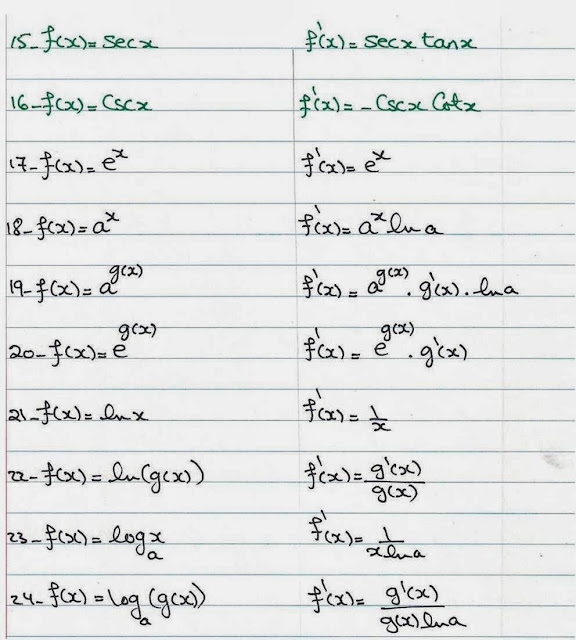 15- f(x) = secx f'(x) = secx tanx
16- f(x) = Cscx f'(x) = - Cscx Cotx
17- f(x) = e^x f'(x) = e^x
18- f(x) = a^x f'(x) = a^x ln a
19- f(x) = a^g(x) f'(x) = a^g(x) . g'(x) . ln a
20- f(x) = e^g(x) f'(x) = e^g(x) . g'(x)
21- f(x) = ln x f'(x) = 1/x
22- f(x) = ln(g(x)) f'(x) = g'(x)/g(x)
23- f(x) = log_a x f'(x) = 1/(x ln a)
24- f(x) = log_a (g(x)) f'(x) = g'(x)/(g(x) ln a)